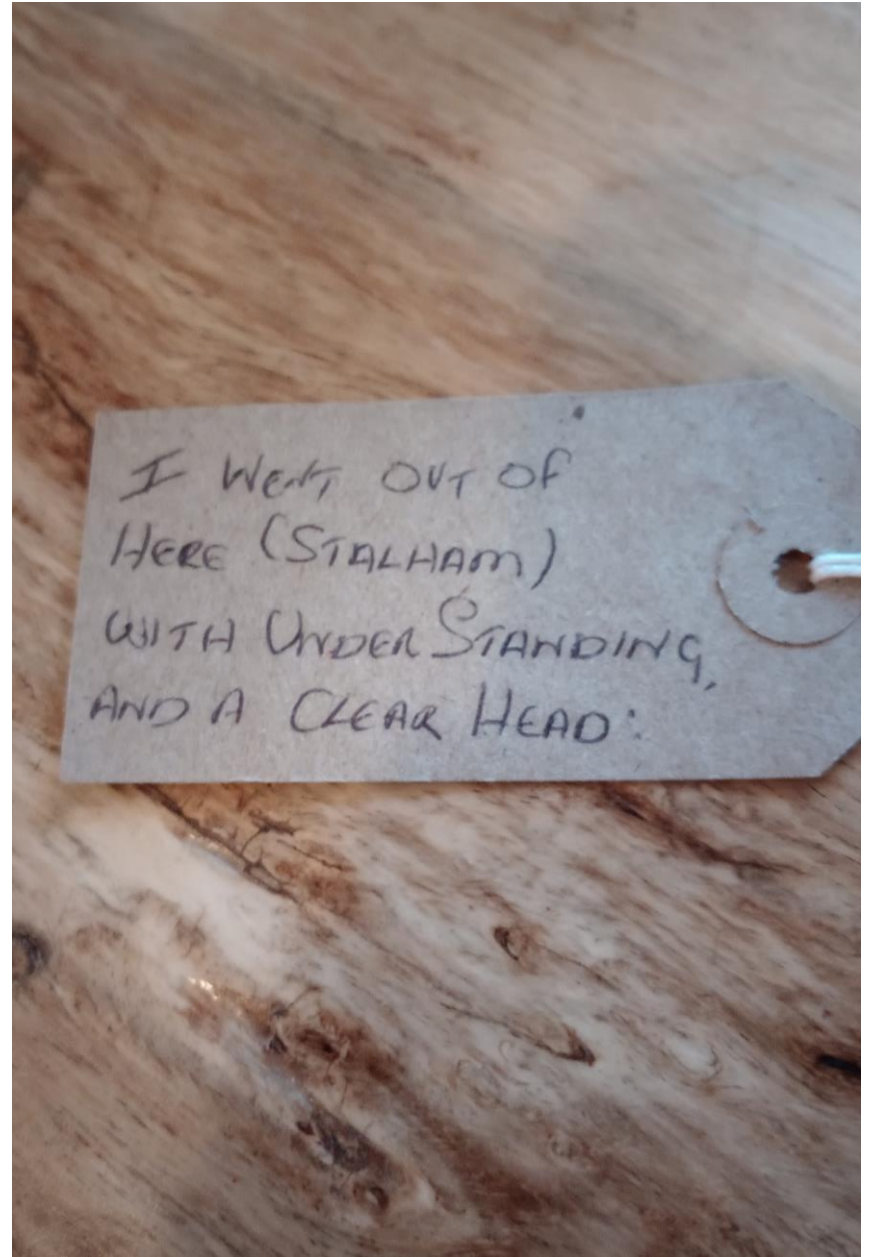 I WENT OUT OF
HERE (STALHAM)
WITH UNDERSTANDING,
AND A CLEAR HEAD: